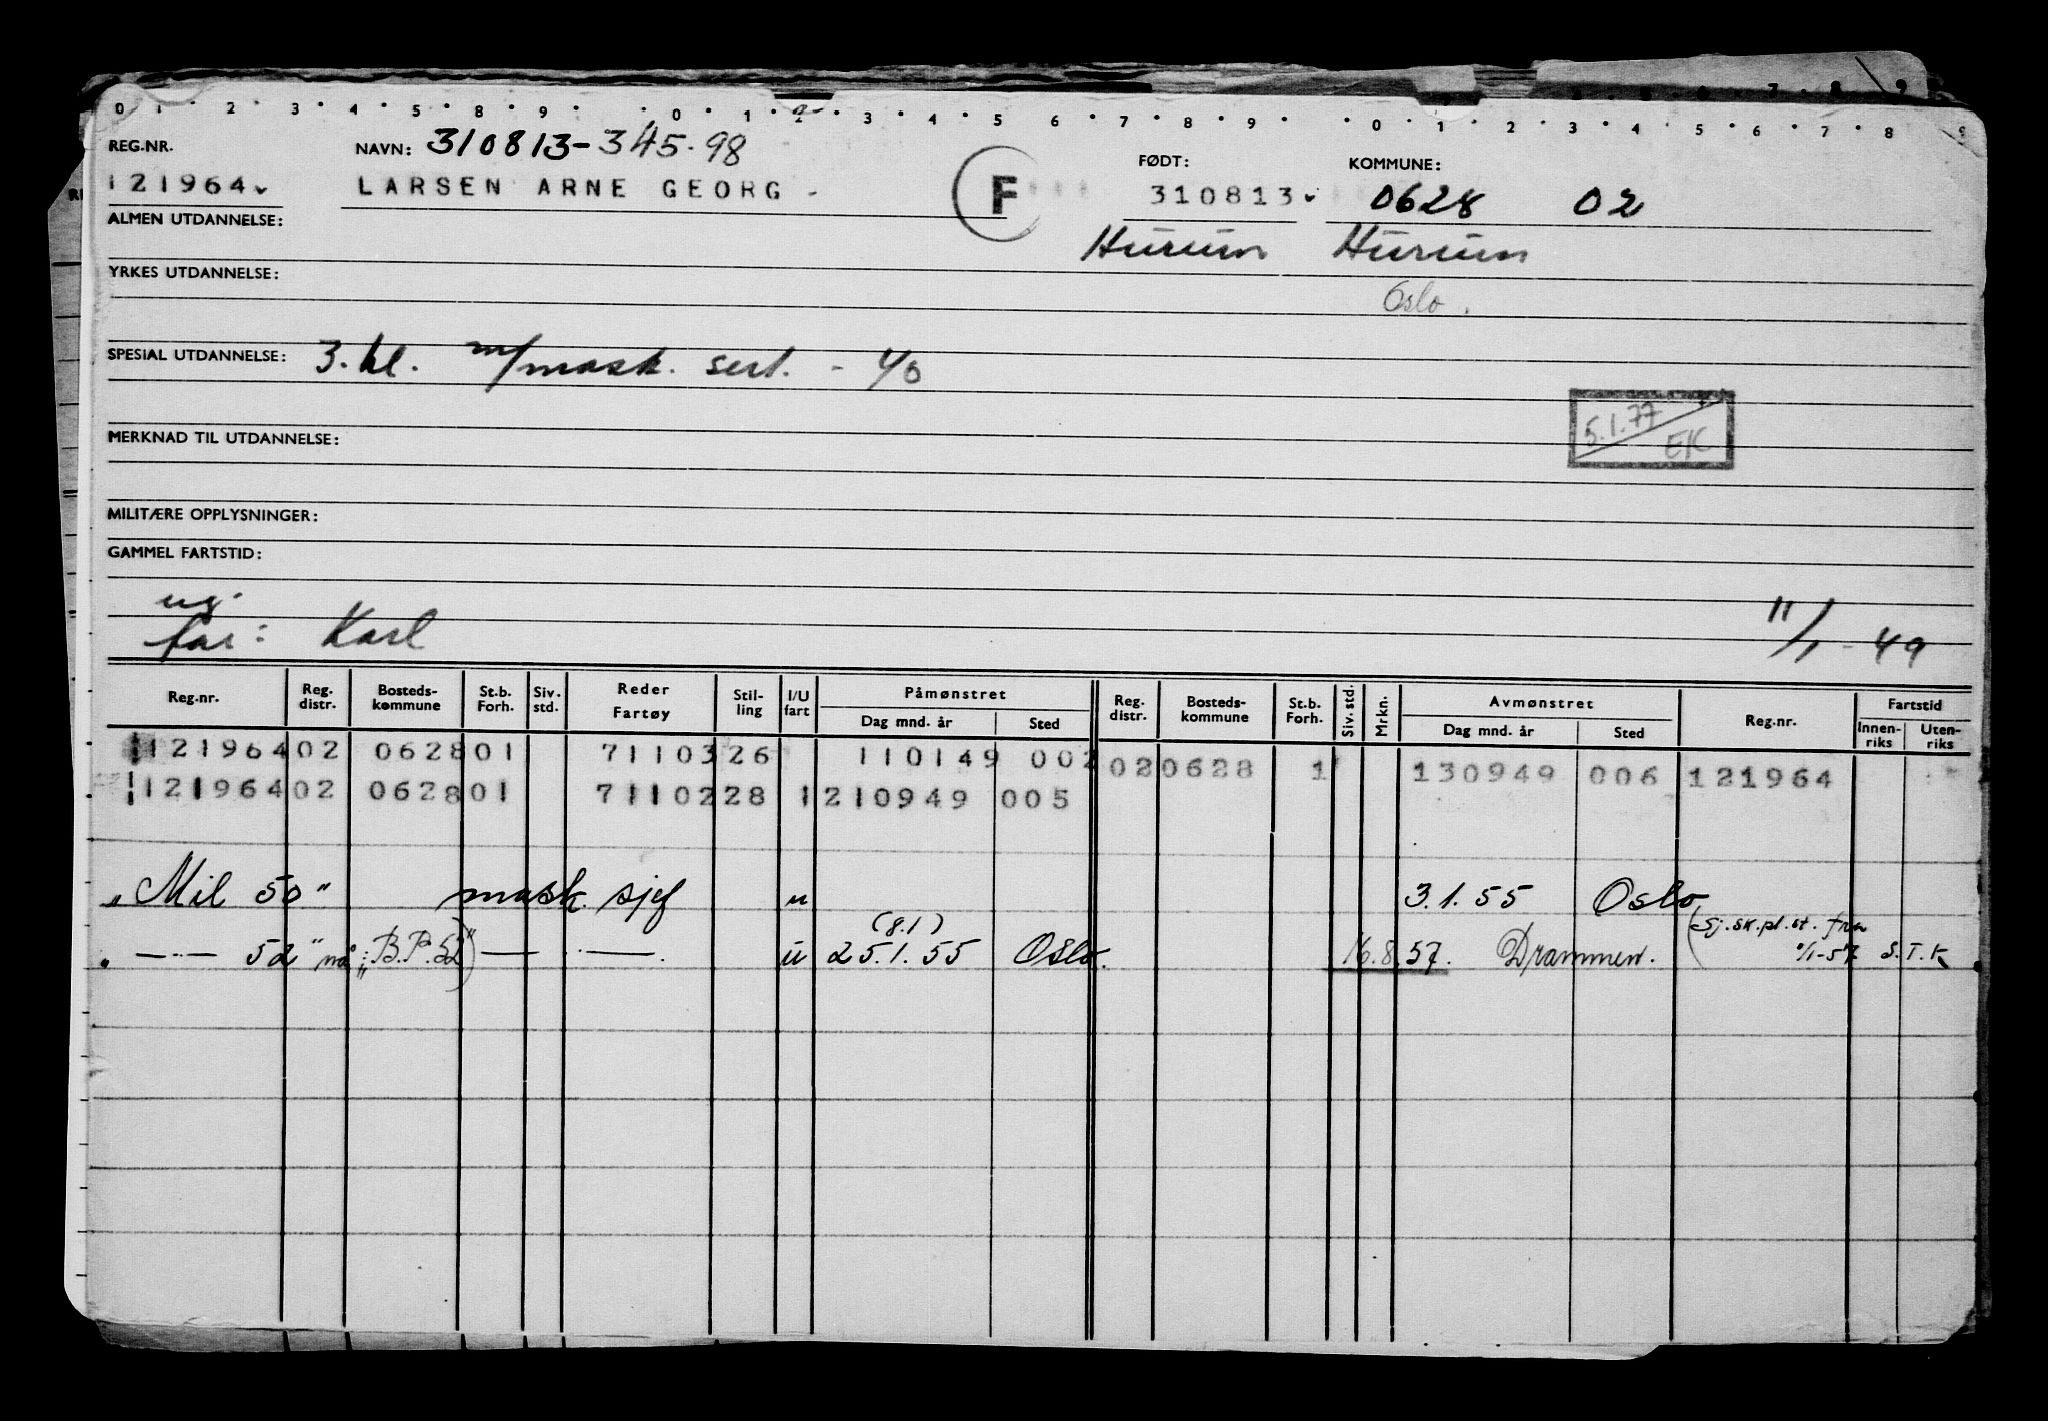 0 1 2 3 4 5 6 7 8 9 0 1 2 3 4 5 6 7 8 9 0 1 2 3 4 5 6 7 8 9
REG.NR. NAVN: 310813-345.98 FØDT: KOMMUNE:
121964 LARSEN ARNE GEORG - F 310813 0628 02
ALMEN UTDANNELSE: Hurum Hurum
YRKES UTDANNELSE: Oslo.
SPESIAL UTDANNELSE: 3. kl. m/mask. sert. - 40
5.1.77 EK
MERKNAD TIL UTDANNELSE:
MILITÆRE OPPLYSNINGER:
GAMMEL FARTSTID:
ug.
far: Karl 11/1-49
Reg.nr. Reg. distr. Bosteds-kommune St.b. Forh. Siv. std. Reder Fartøy Stil-ling I/U fart Påmønstret Dag mnd. år Sted Reg. distr. Bosteds-kommune St.b. Forh. Siv. std. Mrkn. Avmønstret Dag mnd. år Sted Reg.nr. Fartstid Innen-riks Uten-riks
121964 02 0628 01 71103 26 110149 002 02 0628 1 130949 006 121964
121964 02 0628 01 71102 28 1 210949 005
"Mil 50" mask. sjef u 3.1.55 Oslo
(8.1) (Sj.sk.pl.st. fra
" —·— 52" nå: "B.P. 52") —·—. u 25.1.55 Oslo. 16.8.57. Drammen. 1/1-57 S.T.K